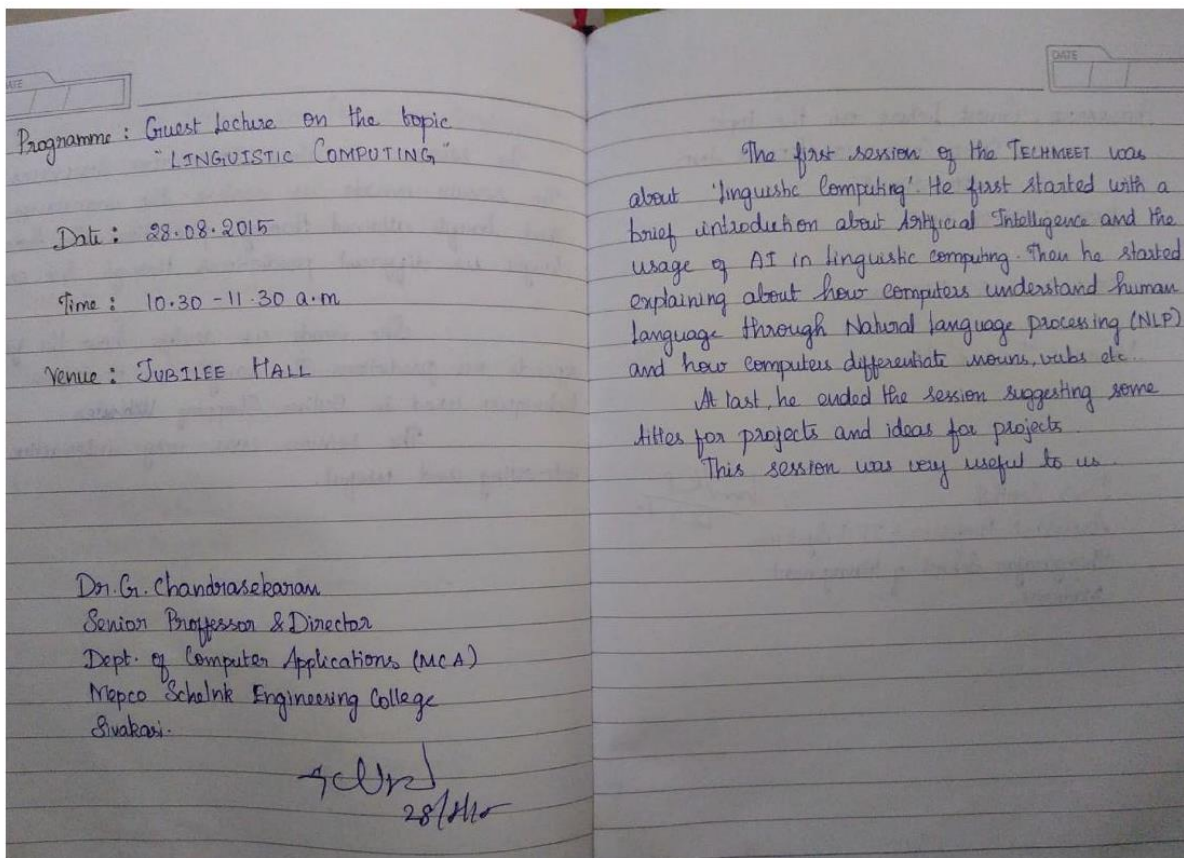 DATE
Programme : Guest Lecture on the topic
"LINGUISTIC COMPUTING"
Date : 28.08.2015
Time : 10.30 - 11.30 a.m
Venue : JUBILEE HALL
Dr. G. Chandrasekaran
Senior Proffessor & Director
Dept. of Computer Applications (MCA)
Mepco Schelnk Engineering College
Sivakasi.
28/8/15
DATE
The first session of the TECHMEET was
about 'Linguistic Computing'. He first started with a
brief introduction about Artificial Intelligence and the
usage of AI in linguistic computing. Then he started
explaining about how computers understand human
language through Natural language processing (NLP)
and how computers differentiate nouns, verbs etc.
At last, he ended the session suggesting some
titles for projects and ideas for projects.
This session was very useful to us.